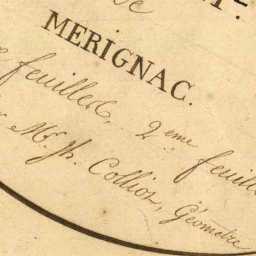 MERIGNAC.
feuilles, 2eme feuille
Mr. Jh. Collios, Géomètre